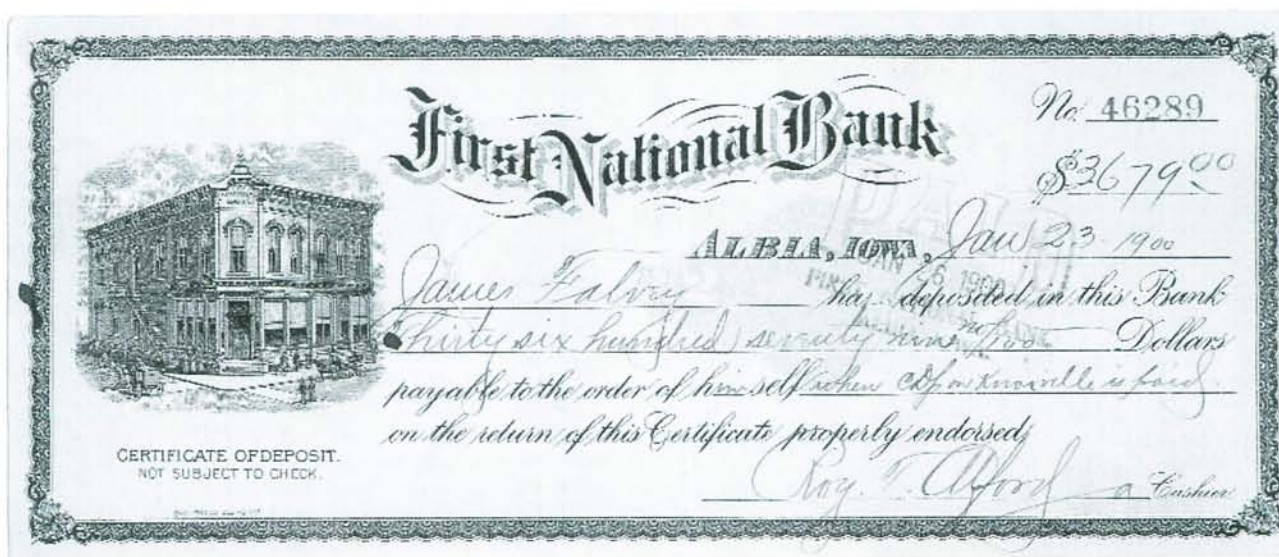 First National Bank
No. 46289
$3679.00
ALBIA, IOWA, Jan 23 1900
PAID
JAN 26 1900
James Falvey has deposited in this Bank
Thirty six hundred seventy nine no/100 Dollars
payable to the order of himself when CD on Knoxville is paid
on the return of this Certificate properly endorsed
Roy. T. Alford a Cashier
CERTIFICATE OF DEPOSIT.
NOT SUBJECT TO CHECK.